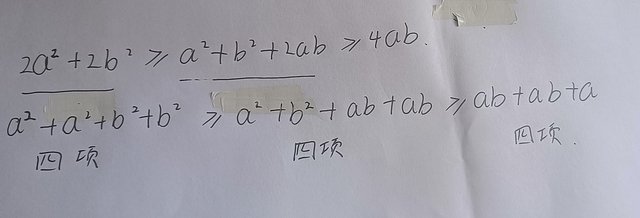 2a² + 2b² ≥ a² + b² + 2ab ≥ 4ab.
a² + a² + b² + b² ≥ a² + b² + ab + ab ≥ ab + ab + a
四项 四项 四项.